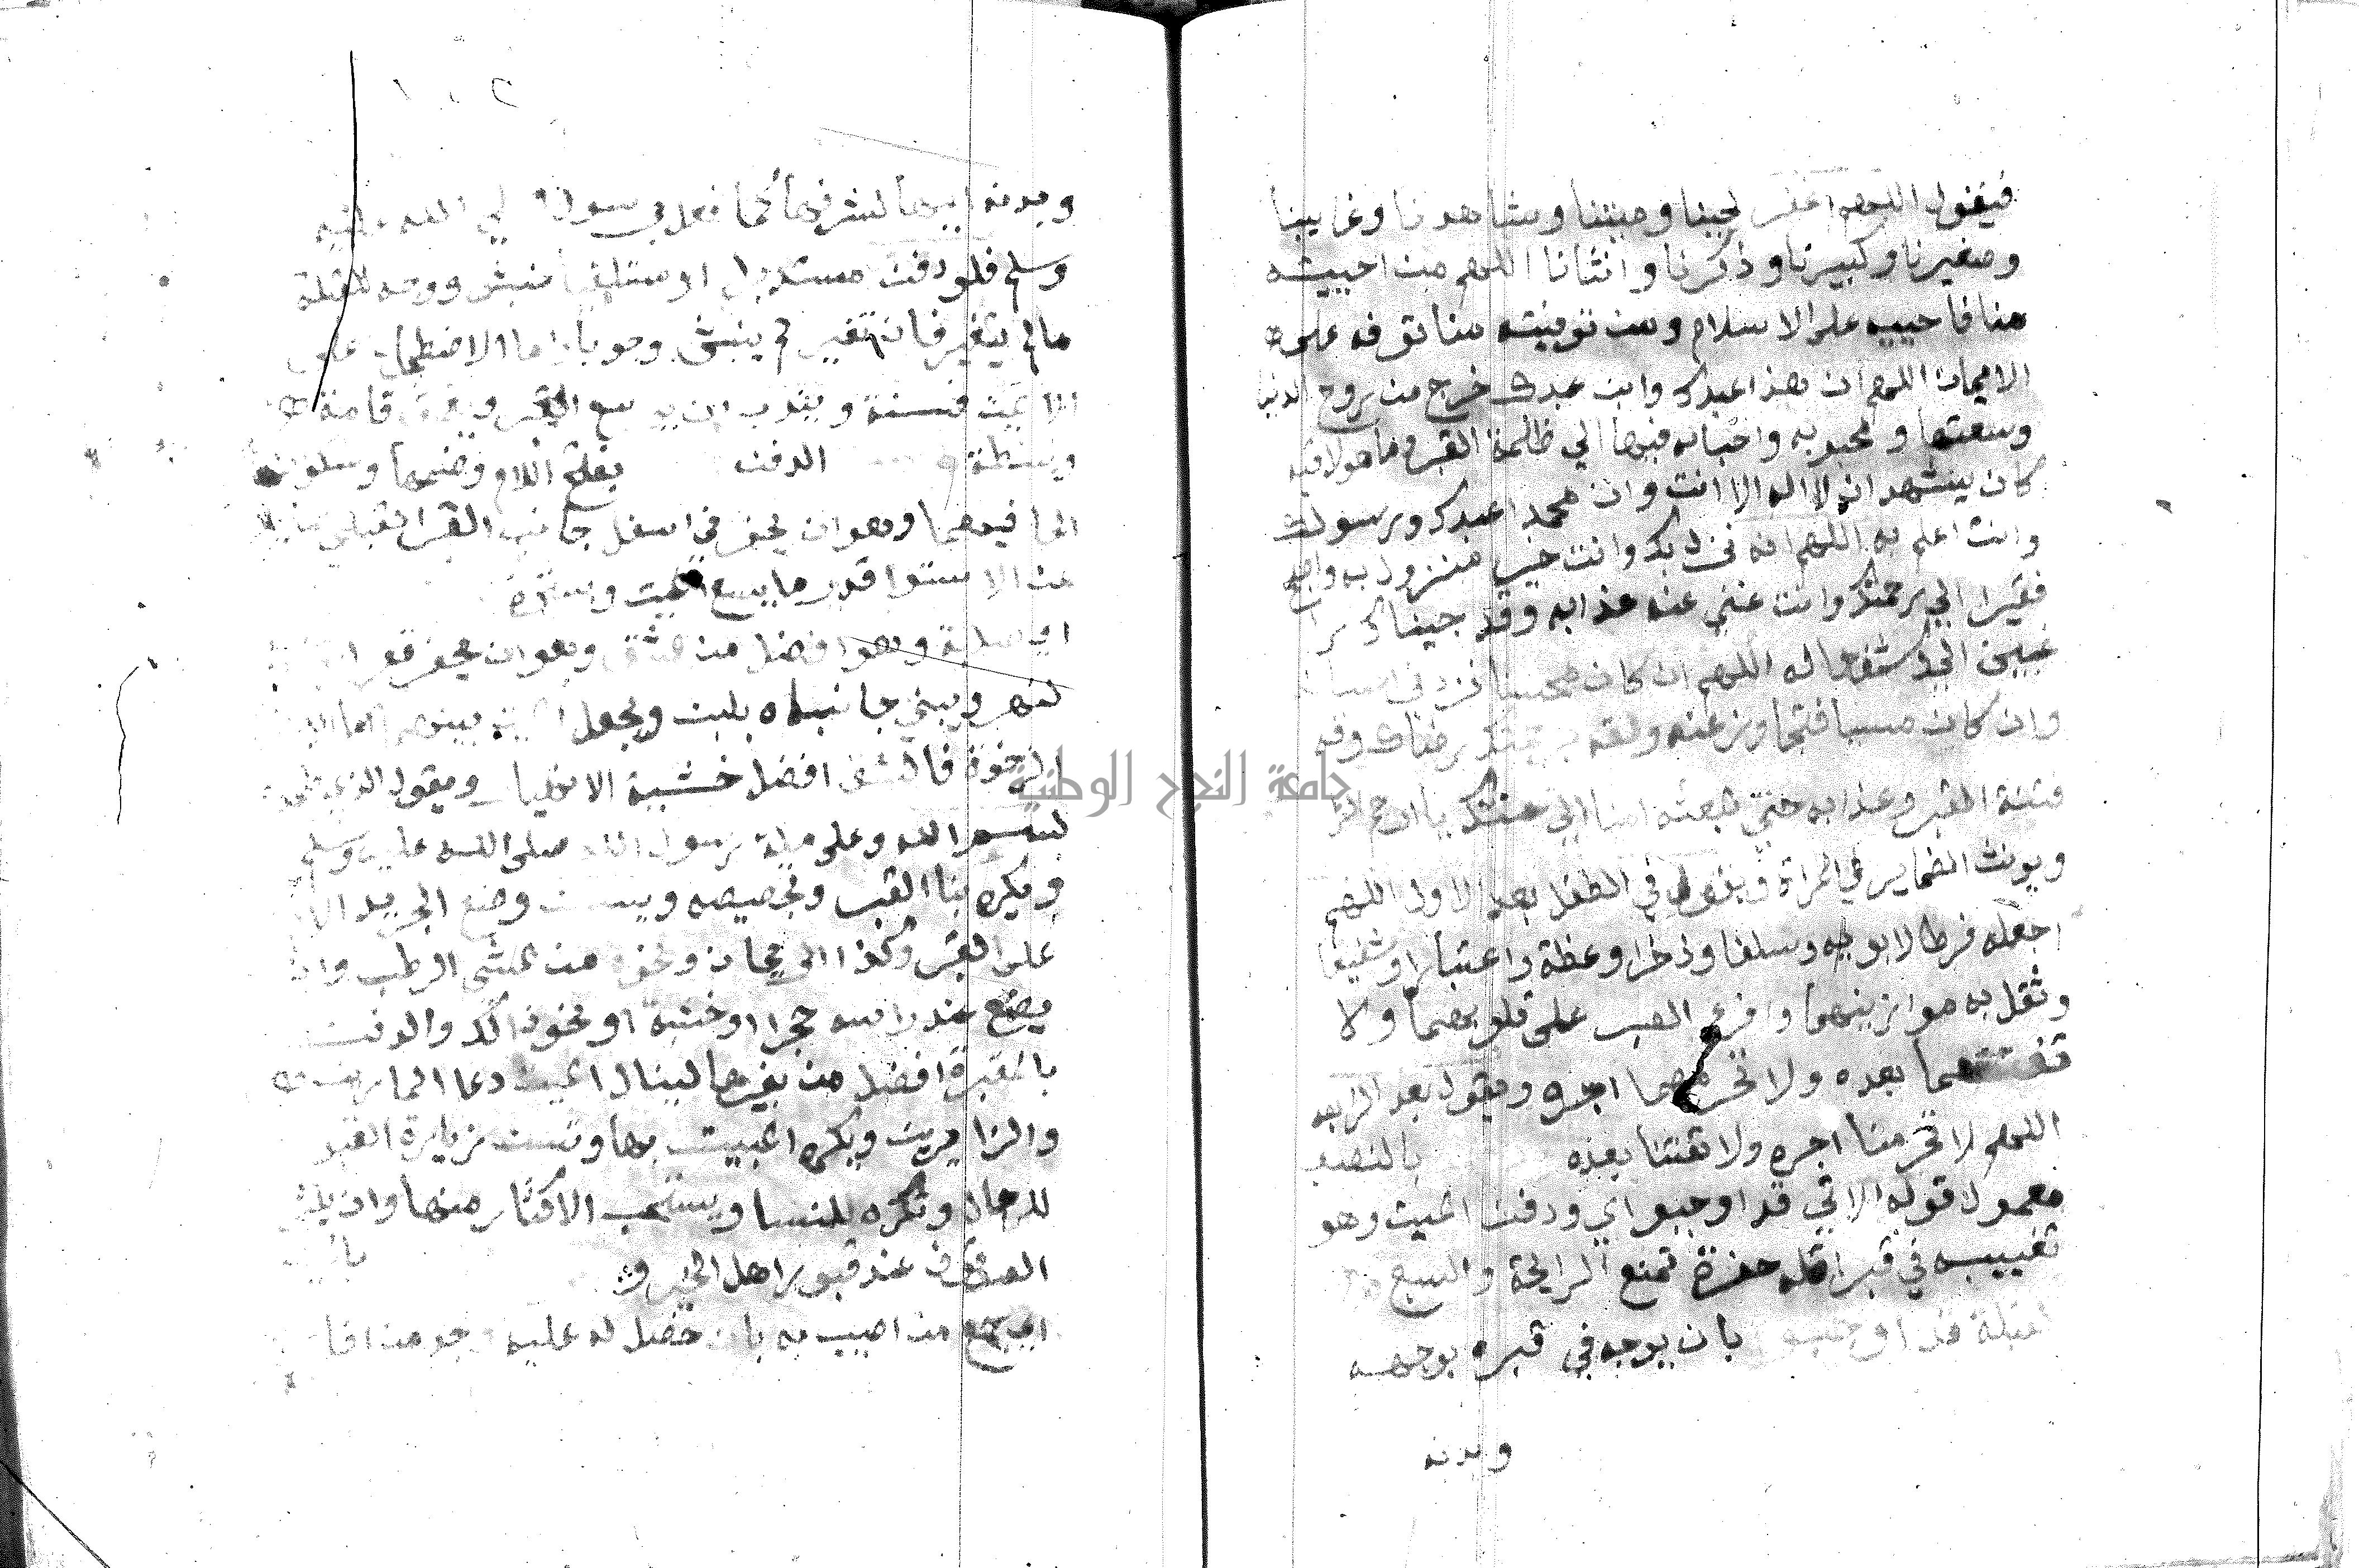 فيقول اللهم اغفر لحينا وميتنا وشاهدنا وغايبنا
وصغيرنا وكبيرنا وذكرنا وانثانا اللهم من احييته
منا فاحييه على الاسلام ومن توفيته منا توفه على
الايمان اللهم ان هذا عبدك وابن عبدك خرج من روح الدنيا
وسعتها ومحبوبه واحباه فيها الي ظلمة القبر وما هو لاقيه
كان يشهد ان لا اله الا انت وان محمدا عبدك ورسولك
وانت اعلم به اللهم انه نزل بك وانت خير منزول به واصبح
فقيرا الي رحمتك وانت غني عن عذابه وقد جيناك را
غبين اليك شفعا له اللهم ان كان محسنا فزد في احسانه
وان كان مسيا فتجاوز عنه ولقه برحمتك رضاك وقه
فتنة القبر وعذابه حتي تبعثه امنا الي جنتك يا ارحم الر
ويونث الضماير في المراة ويقول في الطفل بعد الاولى اللهم
اجعله فرطا لابويه وسلفا وذخرا وعظة واعتبارا وشفيعا
وثقل به موازينهما وافرغ الصبر على قلوبهما ولا
تفتنهما بعده ولا تحرمهما اجره ويقول بعد الرابعه
اللهم لا تحرمنا اجره ولا تفتنا بعده بالنصب
معمول قوله الاتي قد اوجبو اي ودفن الميت وهو
تغييبه في قبر اقله حفرة تمنع الرايحة والسبع
لقبلة قد اوجبو بان يوجه في قبره بوجهه
وبدنه
١٠٢
وبدنه اليها لشرفها كما فعل برسول الله صلي الله عليه
وسلم فلو دفن مستدبرا او مستلقيا نبش ووجه للقبلة
مالم يتغير فان تغير لم ينبش وجوبا اما الاضطجاع على
الايمن فسنة ويندب ان يوسع القبر ويعمق قامة
وبسطة الدفن بفتح اللام وضمها وسكون
الحا فيهما وهو ان يحفر في اسفل جانب القبر القبلي مايلا
عن الاستوا قدر ما يسع الميت ويستره
اي صلبة وهو افضل من شق وهو ان يحفر قعر
لنهر ويبني جانباه بلبن ويجعل الميت بينهما اما
الرخوة فالشق افضل خشية الانهيار ويقول الذي يلحده
بسم الله وعلى ملة رسول الله صلى الله عليه وسلم
ويكره بنا القبر وتجصيصه ويسن وضع الجريد
على القبر وكذا الريحان ونحوه من الشي الرطب وان
يضع عند راسه حجرا او خشبة او نحو ذالك والدفن
بالمقبرة افضل من بغيرها لينال الميت دعا المارين
والزايرين ويكره المبيت بها وتسن زيارة القبر
للرجال وتكره للنسا ويستحب الاكثار منها وان يكثر
الوقوف عند قبور اهل الخير
من اصيب به بان حصل له عليه وجد من اقا
جامعة النجاح الوطنية